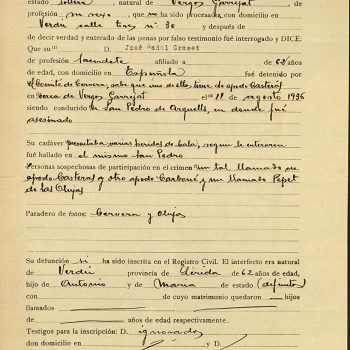 estado soltera, natural de Verges Garrejat
profesión su sexo, que no ha sido procesado con domicilio en
Verdú calle nº 30 y después de
de decir verdad y enterado de las penas por falso testimonio fué interrogado y DICE:
Que su D. José
de profesión afiliado a de 62 años
de edad, con domicilio en Española fué detenido por
el Comité de Cervera, sabe que uno de ellos tiene de apodo Casteras
en cerca de Verges Garrejat el 11 agosto 1936
siendo conducido a San Pedro de Arquells, en donde fué
asesinado
Su cadáver presentaba varias heridas de bala, según le enteraron
fué hallado en el mismo San Pedro
Personas sospechosas de participación en el crimen un tal llamado en
apodo Casteras y otro apodo Carboné y un llamado Pepet
de las Olujas
Paradero de éstos: Cervera y Olujas
Su defunción si ha sido inscrita en el Registro Civil. El interfecto era natural
de Verdú provincia de Lérida de 62 años de edad,
hijo de Antonio y de Maria de estado (difuntos)
con de cuyo matrimonio quedaron hijos
llamados
de años de edad respectivamente.
Testigos para la inscripción: D. ignorados
don domicilio en y D.